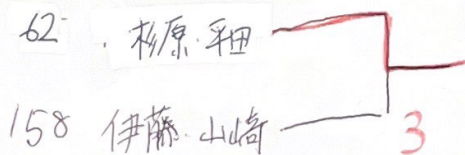 62 杉原・平田
158 伊藤・山崎
3